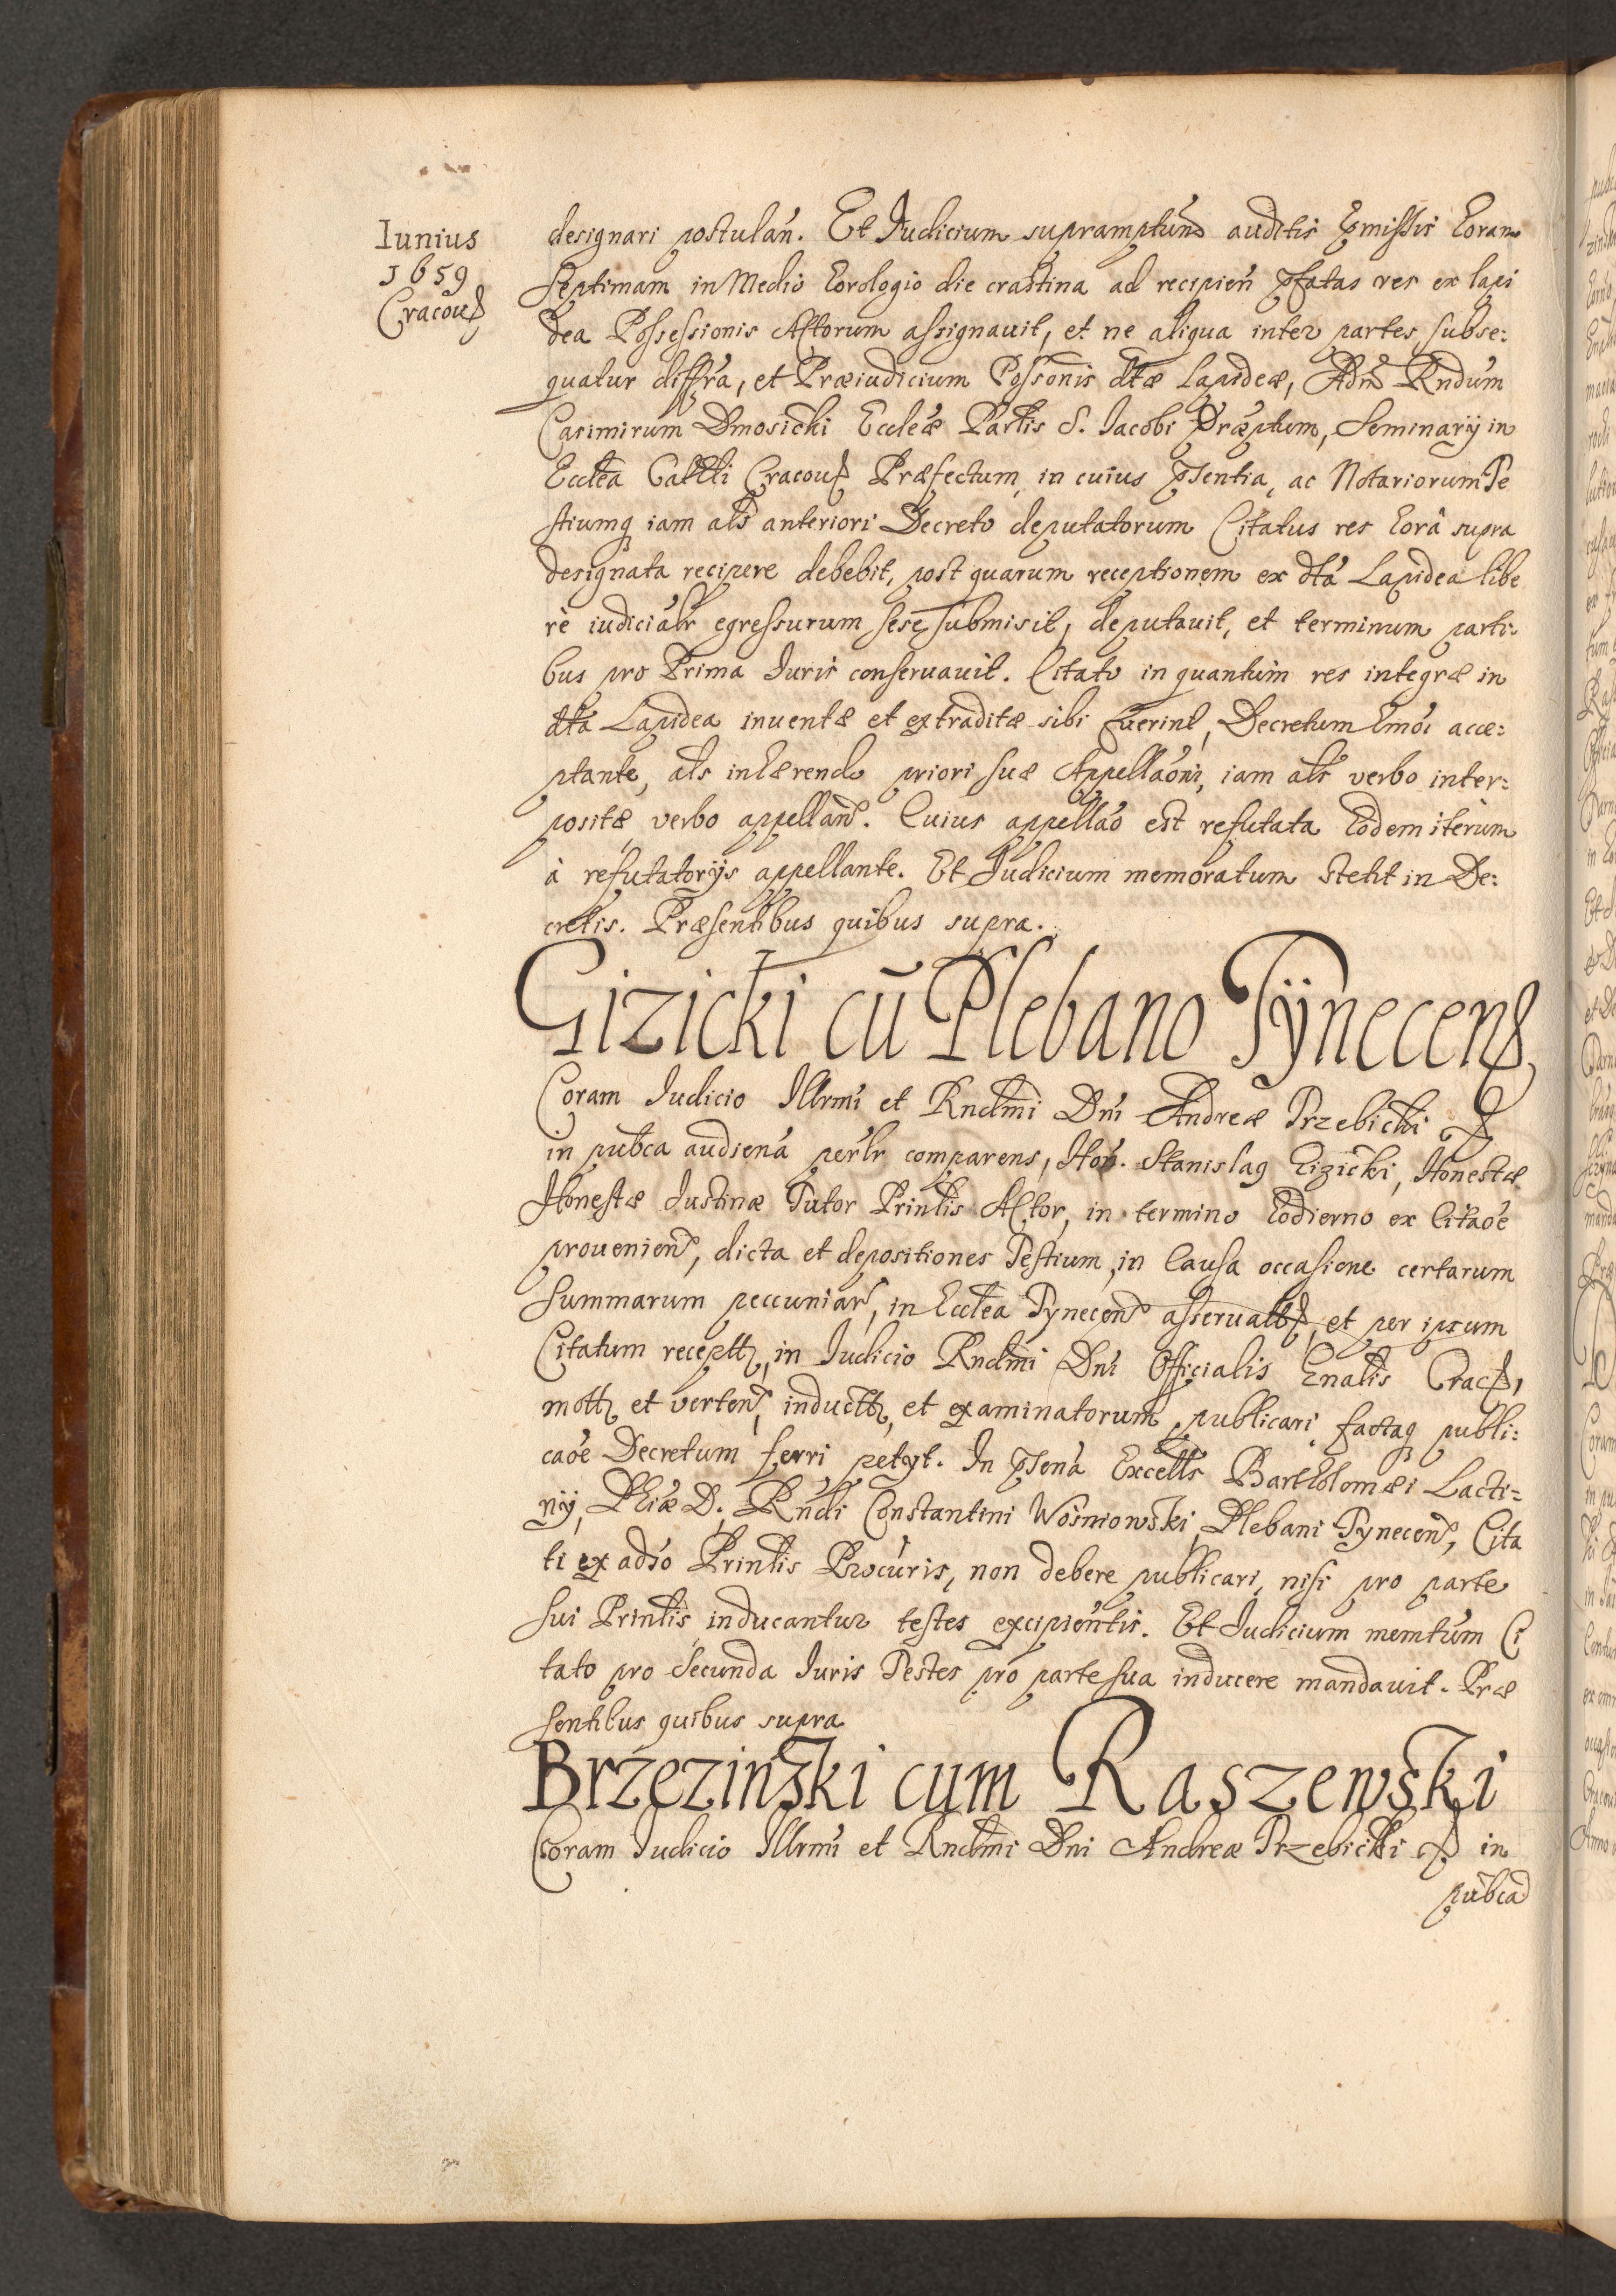 Iunius
1659
Cracou
designari postulan̄. Et Iudicium supramptum auditis p̄missis horam
septimam in Medio horologio die crastina ad recipien̄ p̄fatas res ex lapi
dea Possessionis Actorum assignauit, et ne aliqua inter partes subse:
quatur diffr̃a, et Præiudicium Possonis dtæ Lapideæ, Adm̃ Rndum
Casimirum Dmosicki Eccleæ Partis S. Iacobi Præptum, Seminarij in
Ecclea Cattli Cracou Præfectum, in cuius p̃sentia, ac Notariorum Te
stiumq iam als anteriori Decreto deputatorum Citatus res horâ supra
designata recipere debebit, post quarum receptionem ex dta Lapidea libe
rè iudicialr egressurum sese submisit, deputauit, et terminum parti
bus pro Prima Iuris conseruauit. Citato in quantum res integræ in
dta Lapidea inuentæ et extraditæ sibi fuerint, Decretum hmoi acce:
ptante, als inhærendo priori suæ Appellaoni, iam als verbo inter:
positæ verbo appellan̄. Cuius appellao est refutata Eodem iterum
à refutatorijs appellante. Et Iudicium memoratum stetit in De:
cretis. Præsentibus quibus supra.
Gizicki cū Plebano Tÿnecens
Coram Iudicio Illrmi et Rndmi Dni Andreæ Trzebicki
in pubca audiena perlr comparens, Hon. Stanislaq Gizicki, Honestæ
Honestæ Iustinæ Tutor Prinlis Actor, in termino hodierno ex Citaoe
prouenien̄, dicta et depositiones Testium, in Causa occasione certarum
Summarum peccuniar, in Ecclea Tynecen̄ asseruatt, et per ipsum
Citatum receptt, in Iudicio Rndmi Dni Officialis Gnalis Crac,
mott et verten̄, inductt, et examinatorum publicari factaq publi:
caoe Decretum ferri petyt. In p̃sena Excells Bartholomæi Lacti=
nij, Phiæ D. Rndi Constantini Wosniowski Plebani Tynecen̄, Cita
ti ex adso Prinlis Procuris, non debere publicari, nisi pro parte
sui Prinlis inducantur testes excipientis. Et Iudicium memtum Ci
tato pro Secunda Iuris Testes pro parte sua inducere mandauit. Præ
sentibus quibus supra
Brzezinski cum Raszewski
Coram Iudicio Illrmi et Rndmi Dni Andreæ Trzebicki in
pubca